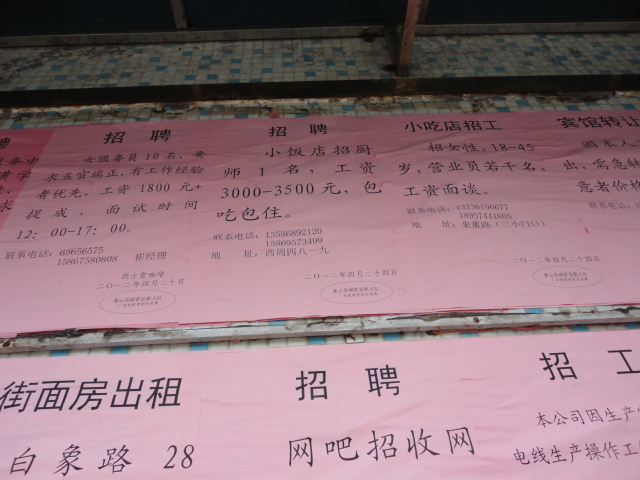 聘
招聘
女服务员10名，要
求五官端正，有工作经验
者优先，工资1800元+
提成，面试时间
12：00-17：00。
联系电话：68656575
15867580808 崔经理
波士堂咖啡
二〇一二年四月二十日
招聘
小饭店招厨
师1名，工资
3000-3500元，包
吃包住。
联系电话：13586892120
15869573499
地 址：西周四八一九
二〇一二年四月二十四日
小吃店招工
招女性，18-45
岁，营业员若干名。
工资面谈。
联系电话：13736196677
18957444805
地 址：来薰路（二小门口）
二〇一二年四月二十四日
宾馆转让
因本人
出，需急
意者价格
联系电话：
街面房出租
白象路 28
招聘
网吧招收网
招工
本公司因生产
电线生产操作工